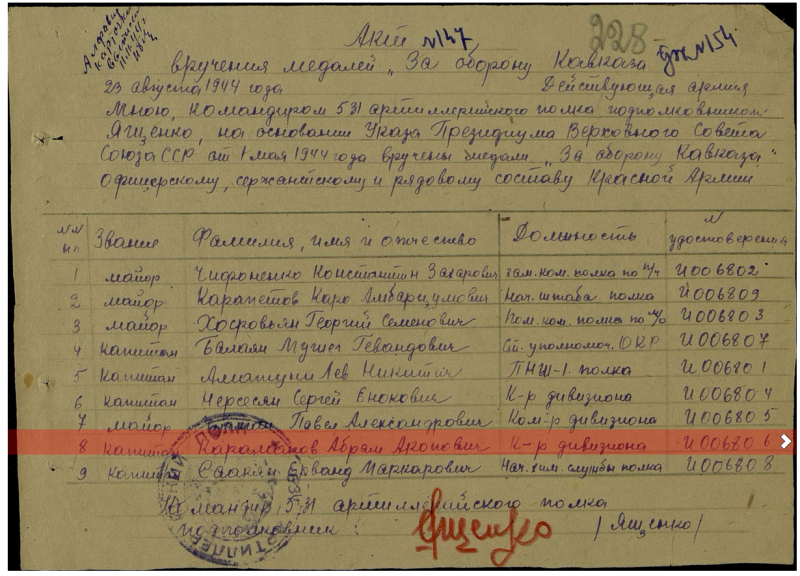 Алфавит
карточка
Акт №147
228
№154
вручения медалей „За оборону Кавказа
23 августа 1944 года Действующая армия
Мною, командиром 531 артиллерийского полка подполковником
Ященко, на основании Указа Президиума Верховного Совета
Союза ССР от 1 мая 1944 года вручены медали „За оборону Кавказа"
офицерскому, сержантскому и рядовому составу Красной Армии
NN пп Звание Фамилия, имя и отчество Должность N удостоверения
1 майор Константин Захарович зам. ком. полка по п/ч И006802
2 майор Карапетов Каро Амбарцумович Нач. штаба полка И006809
3 майор Хосровьян Георгий Семенович Пом. ком. полка по И006803
4 капитан Балаян Мушег Гевандович Ст. уполномоч. ОКР И006807
5 капитан Аматуни Лев Никитич ПНШ-1 полка И006801
6 капитан Нерсесян Сергей Енокович К-р дивизиона И006804
7 майор Павел Александрович Ком-р дивизиона И006805
8 капитан Абрам Акопович К-р дивизиона И006806
9 капитан Саакян Маркарович Нач. хим. службы полка И006808
Командир 531 артиллерийского полка
подполковник Ященко /Ященко/